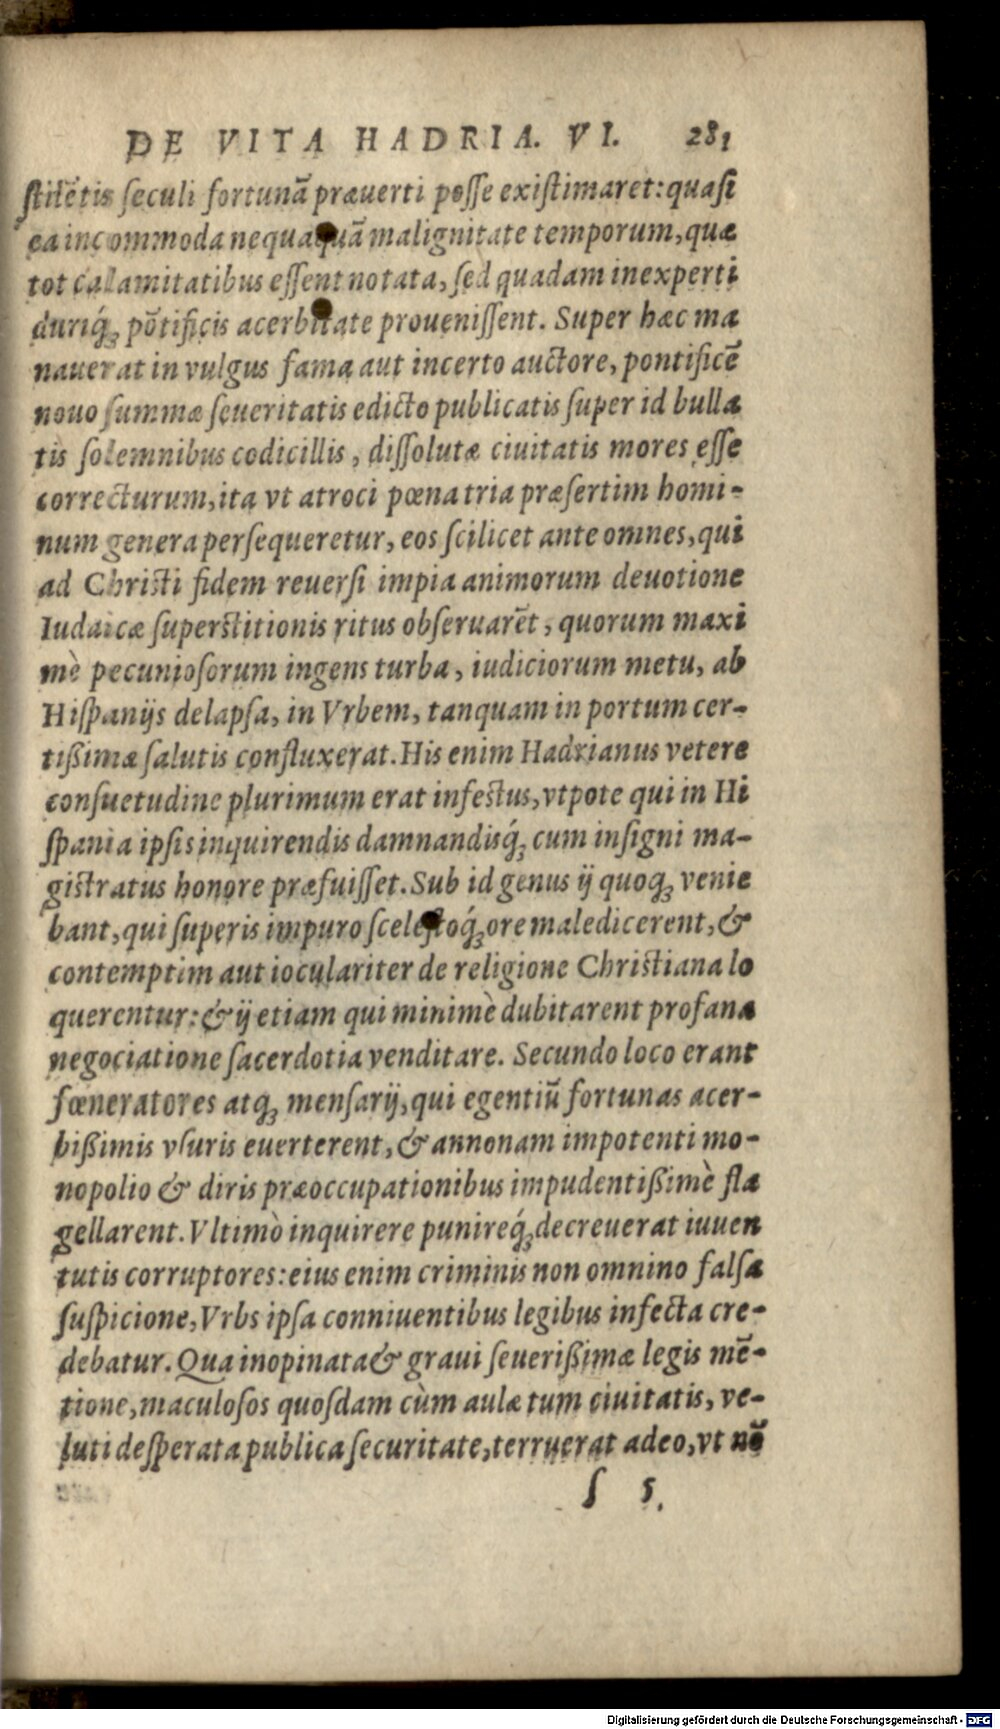 DE VITA HADRIA. VI. 281
ſtilētis ſeculi fortunā præuerti poſſe exiſtimaret: quaſi
ea incommoda nequaquā malignitate temporum, quæ
tot calamitatibus eſſent notata, ſed quadam inexperti
duriq́; pōtificis acerbitate prouenißent. Super hæc ma
nauerat in vulgus fama aut incerto auctore, pontificē
nouo ſummæ ſeueritatis edicto publicatis ſuper id bulla
tis ſolemnibus codicillis, diſſolutæ ciuitatis mores eſſe
correcturum, ita vt atroci pœna tria præſertim homi-
num genera perſequeretur, eos ſcilicet ante omnes, qui
ad Chriſti fidem reuerſi impia animorum deuotione
Iudaicæ ſuperſtitionis ritus obſeruarēt, quorum maxi
mè pecunioſorum ingens turba, iudiciorum metu, ab
Hiſpanijs delapſa, in Vrbem, tanquam in portum cer-
tißimæ ſalutis confluxerat. His enim Hadrianus vetere
conſuetudine plurimum erat infeſtus, vtpote qui in Hi
ſpania ipſis inquirendis damnandisq́; cum inſigni ma-
giſtratus honore præfuiſſet. Sub id genus ij quoq; venie
bant, qui ſuperis impuro sceleſtoq́; ore maledicerent, &
contemptim aut ioculariter de religione Chriſtiana lo
querentur: & ij etiam qui minimè dubitarent profana
negociatione ſacerdotia venditare. Secundo loco erant
fœneratores atq; menſarij, qui egentiū fortunas acer-
bißimis vſuris euerterent, & annonam impotenti mo-
nopolio & diris præoccupationibus impudentißimè fla
gellarent. Vltimò inquirere punireq́; decreuerat iuuen
tutis corruptores: eius enim criminis non omnino falſa
ſuſpicione, Vrbs ipſa conniuentibus legibus infecta cre-
debatur. Qua inopinata & graui ſeuerißimæ legis mē-
tione, maculoſos quoſdam cùm aulæ tum ciuitatis, ve-
luti deſperata publica ſecuritate, terruerat adeo, vt nō
ſ 5.
Digitalisierung gefördert durch die Deutsche Forschungsgemeinschaft - DFG